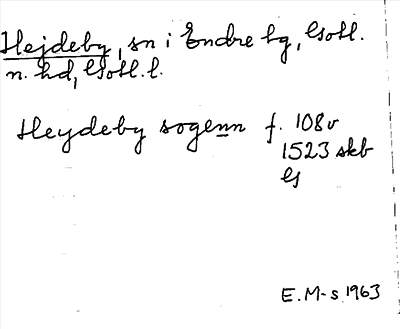 Hejdeby, sn i Endre tg, Gotl.
n. hd, Gotl. l.
Heydeby sogenn f. 108v
1523 skb
G
E. M-s 1963